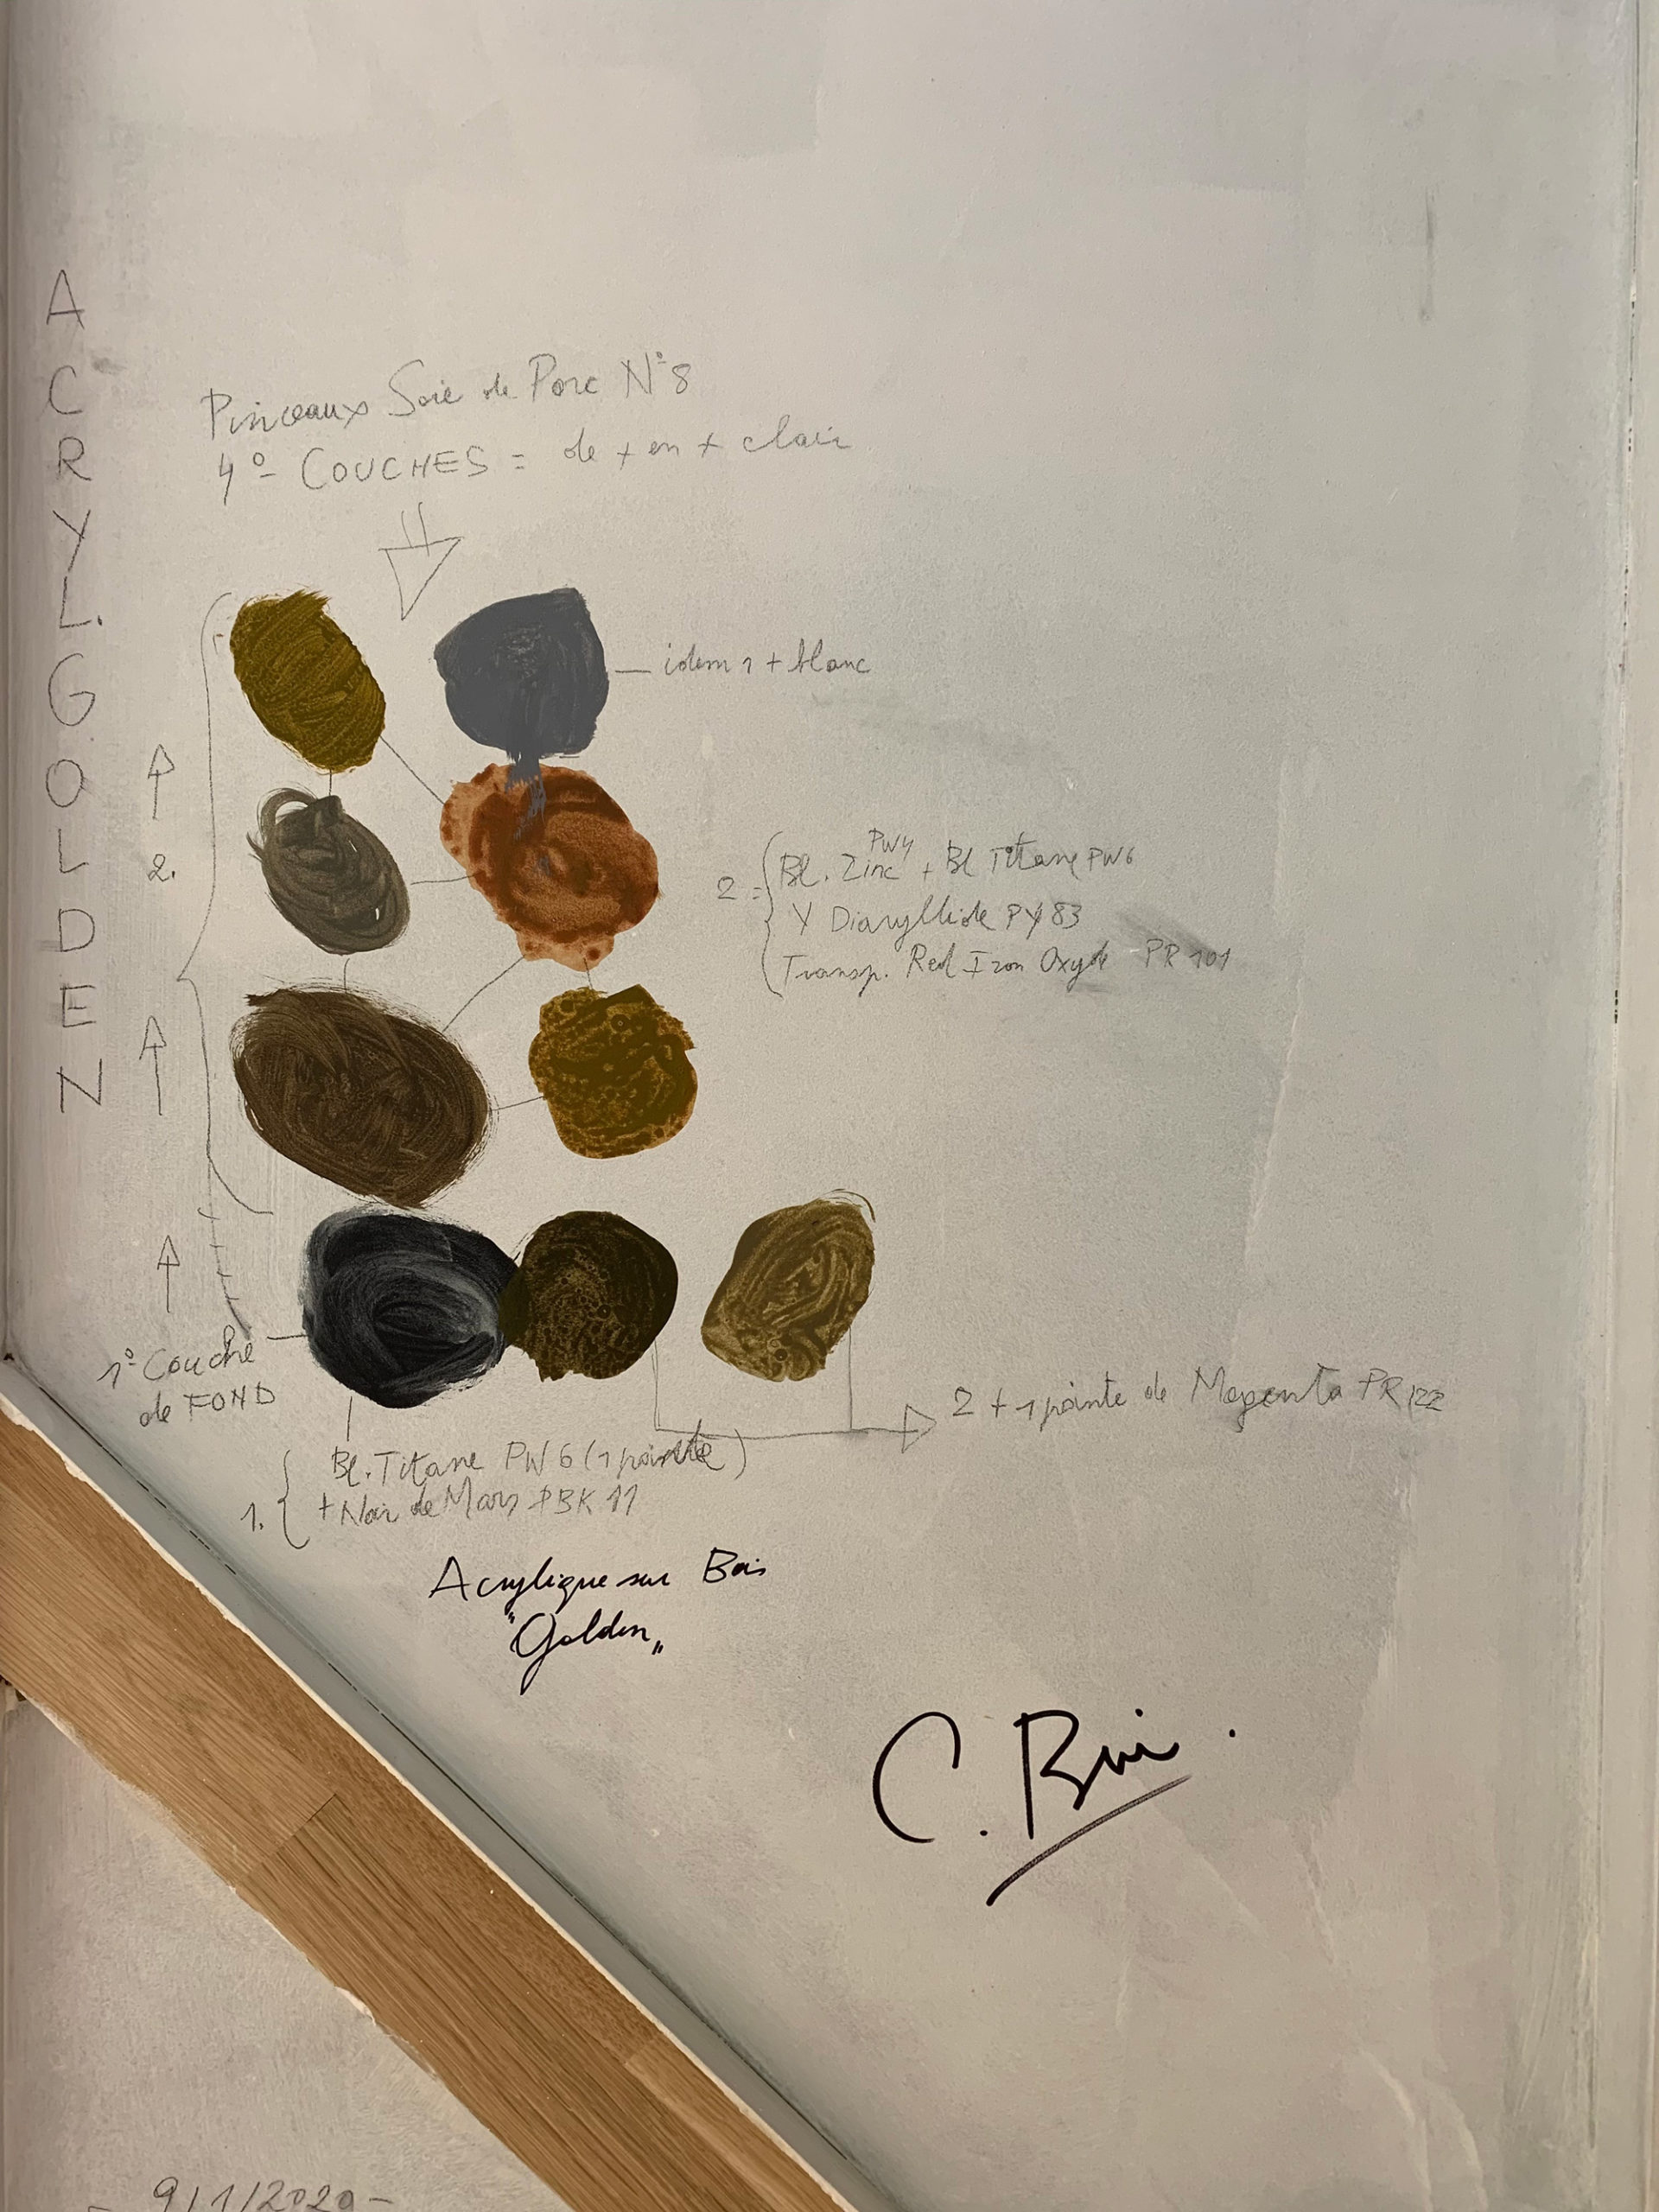 ACRYL. GOLDEN
Pinceaux Soie de Porc N°8
4° COUCHES = de + en + clair
idem 1 + blanc
2.
PW4
2 = Bl. Zinc + Bl Titane PW6
Y Diarylide PY 83
Transp. Red Iron Oxyde PR 101
1° Couche
de FOND
2 + 1 pointe de Magenta PR 122
Bl. Titane PW 6 (1 pointe)
1. + Noir de Mars PBK 11
Acrylique sur Bois
"Golden"
C.
- 9/1/2020 -